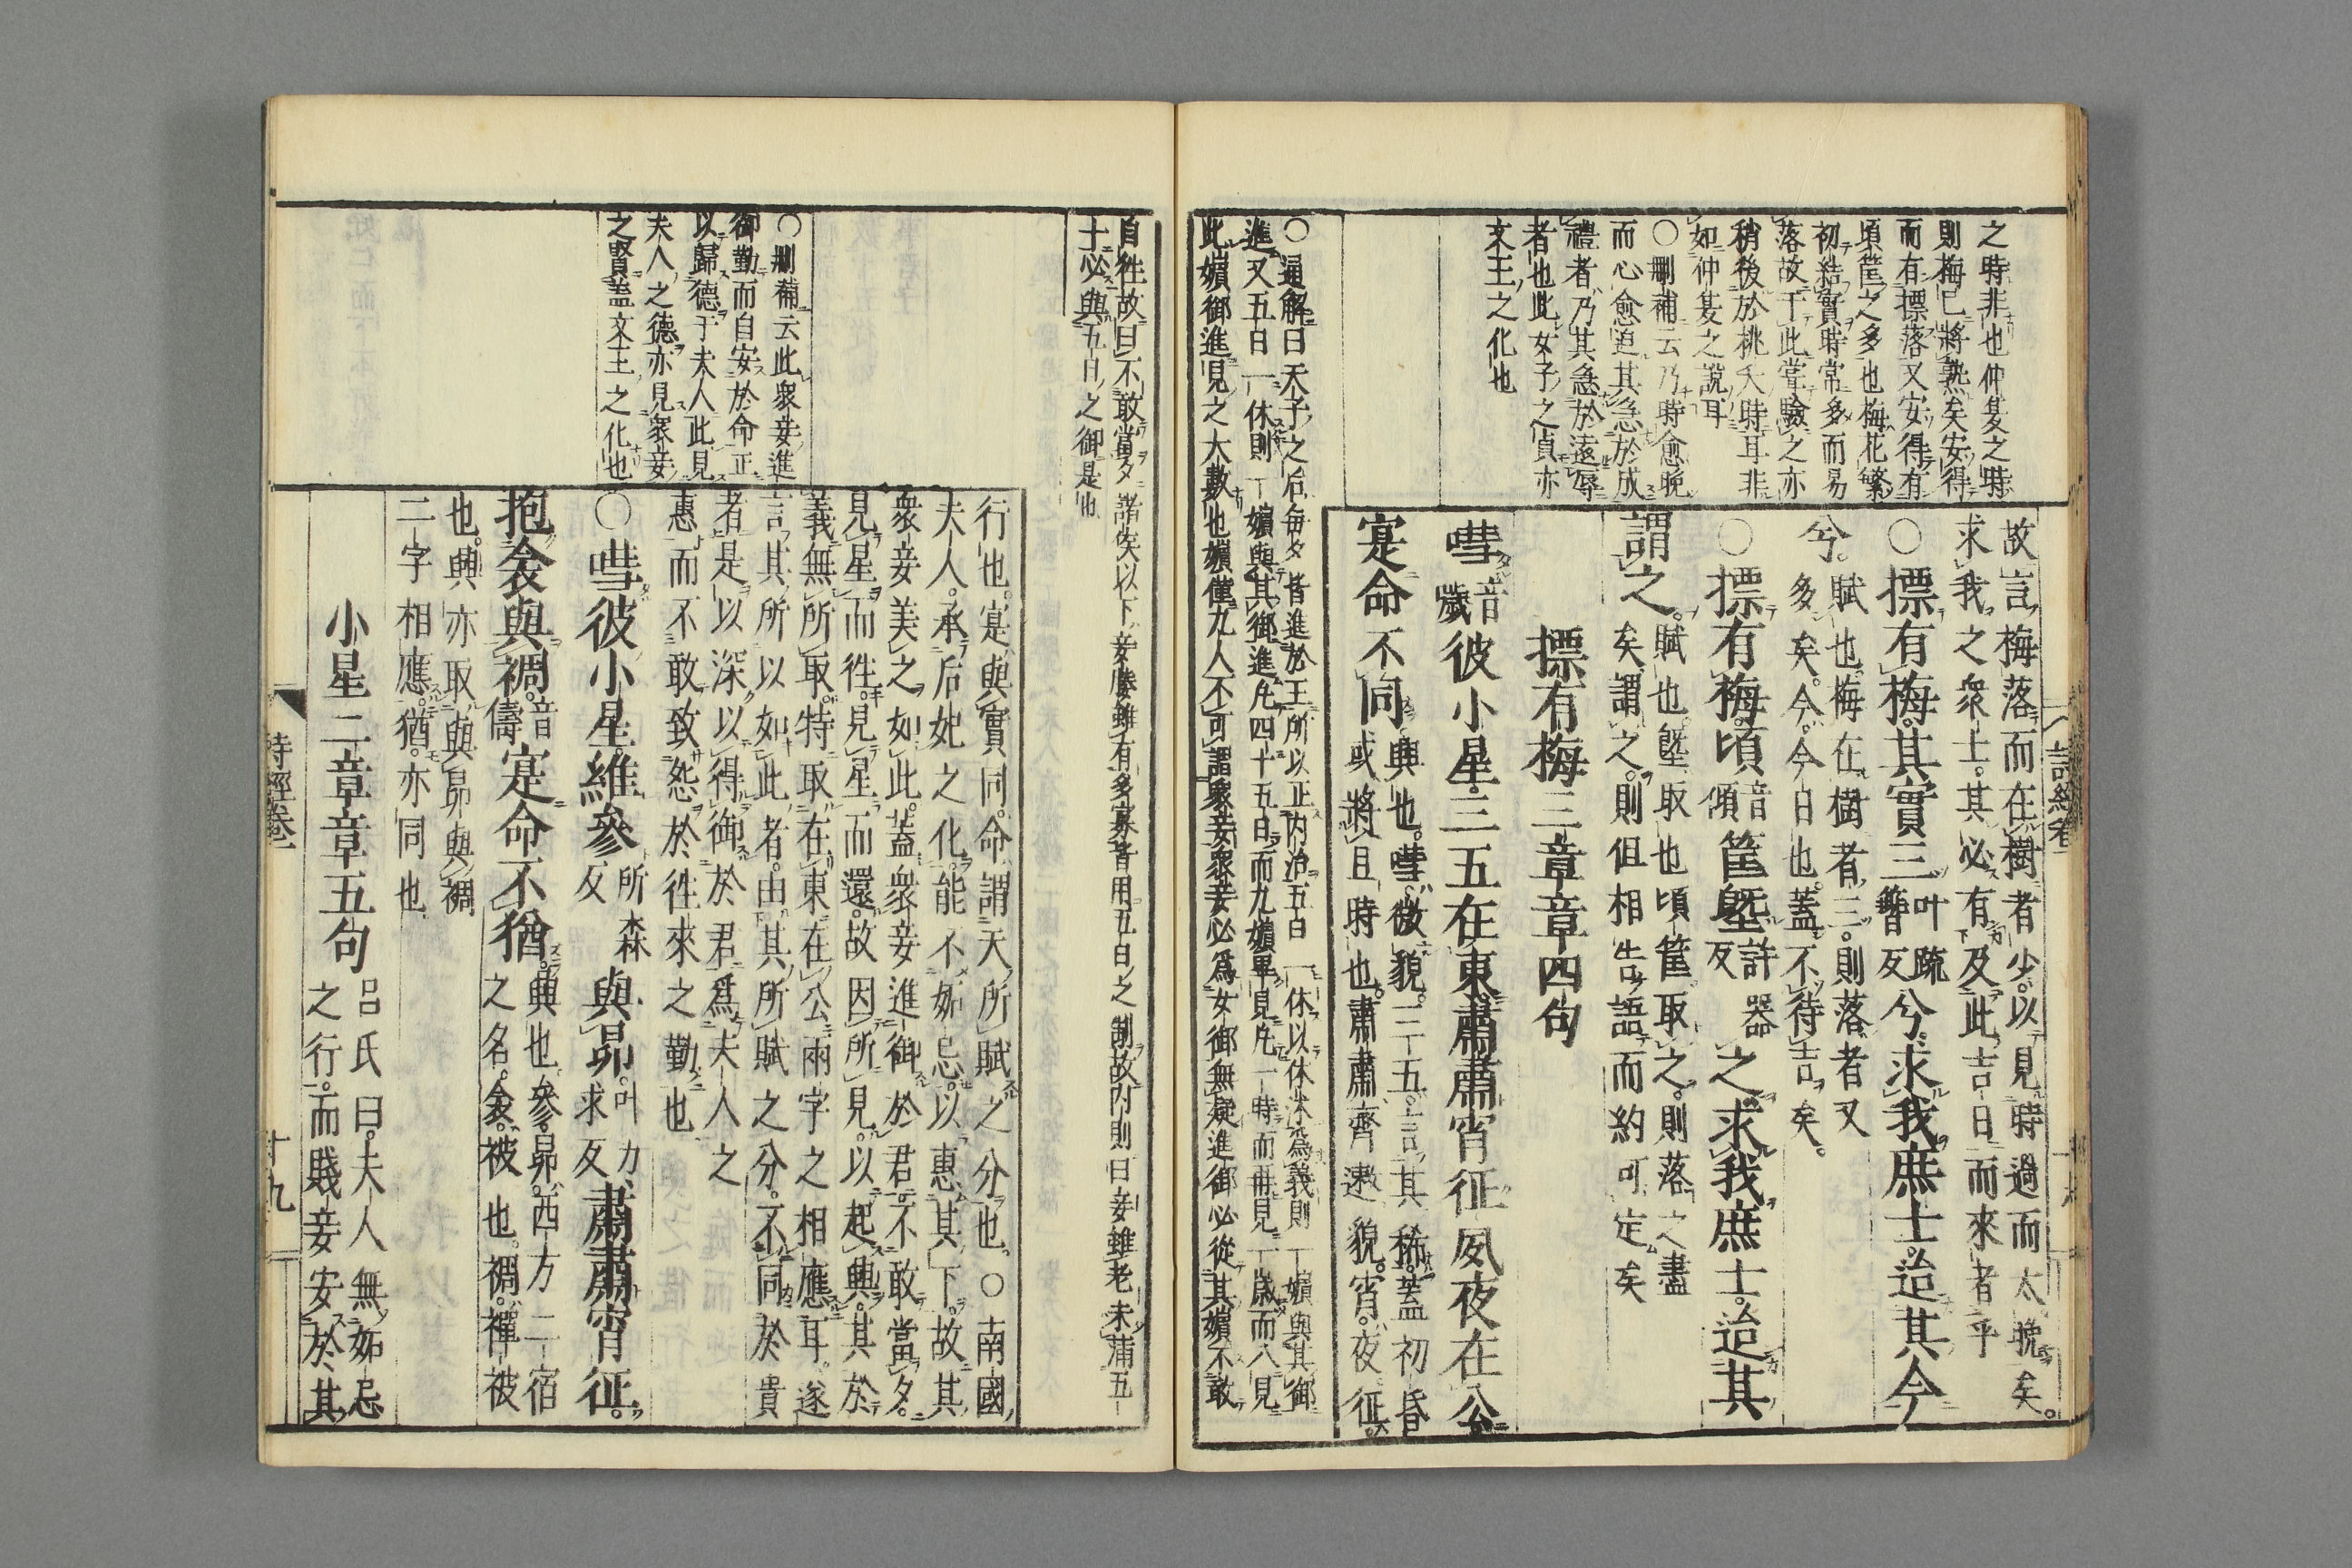 之時非也仲夏之時
則梅已將熟矣安得
而有摽落又安得有
頃筐之多也梅花繁
初結實時常多而易
落故于此嘗驗之亦
稍後於桃夭時耳非
如仲夏之說耳
○刪補云乃時愈晚
而心愈迫其急於成
禮者乃其急於遠辱
者也此女子之貞亦
文王之化也
故言梅落而在樹者少以見時過而太晚矣。
求我之衆士其必有及此吉日而來者乎
○摽有梅其實三叶疏簪反兮求我庶士迨其今
兮。賦也梅在樹者三則落者又
多矣今今日也蓋不待吉矣。
○摽有梅頃音傾筐墍許器反之求我庶士迨其
謂之。賦也墍取也頃筐取之則落之盡
矣謂之則但相告語而約可定矣
摽有梅三章章四句
嘒音歲彼小星三五在東肅肅宵征夙夜在公
寔命不同興也嘒微貌三五言其稀蓋初昏
或將旦時也肅肅齊遫貌宵夜征
○通解曰天子之后每夕皆進於王所以正內治五日一休以休沐爲義則一嬪與其御
進又五日一休則一嬪與其御進凢四十五日而九嬪畢見凢一時而再見一歲而八見
此嬪御進見之大數也嬪僅九人不可謂衆妾衆妾必爲女御無疑進御必從其嬪不敢
自徃故曰不敢當夕諸矦以下妾媵雖有多寡皆用五日之制故內則曰妾雖老未滿五
十必與五日之御是也
○刪補云此衆妾進
御勤而自安於命正
以歸德于夫人此見
夫人之德亦見衆妾
之賢蓋文王之化也
行也寔與實同命謂天所賦之分也○南國
夫人承后妃之化能不妬忌以惠其下故其
衆妾美之如此蓋衆妾進御於君不敢當夕
見星而徃見星而還故因所見以起興其於
義無所取特取在東在公兩字之相應耳遂
言其所以如此者由其所賦之分不同於貴
者是以深以得御於君爲夫人之
惠而不敢致怨於徃來之勤也
○嘒彼小星維參所森反與昴叶力求反肅肅宵征
抱衾與裯音儔寔命不猶興也參昴西方二宿
之名衾被也裯襌被
也興亦取與昴與裯
二字相應猶亦同也
小星二章章五句呂氏曰夫人無妬忌
之行而賤妾安於其
詩經卷一
十九